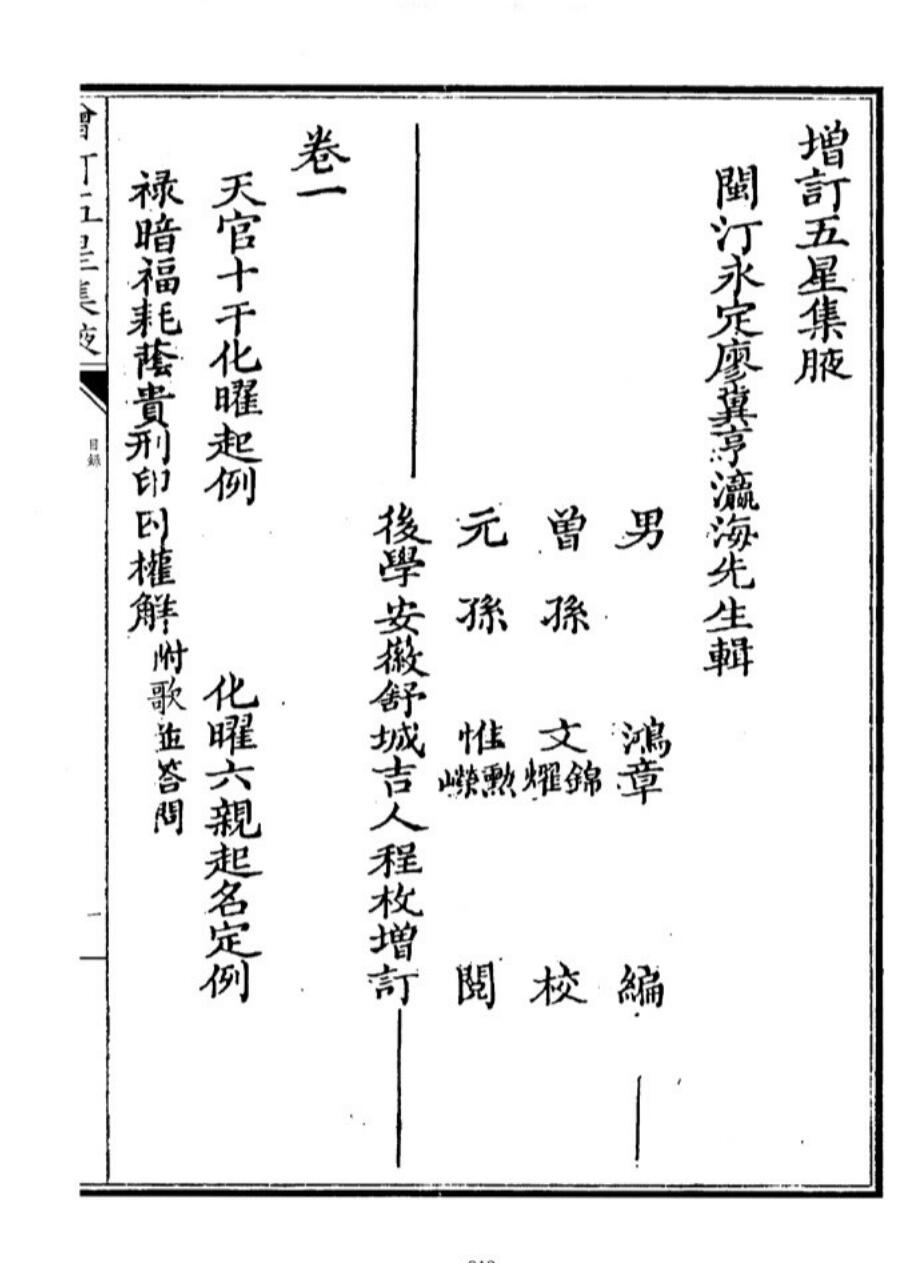 增訂五星集腋
閩汀永定廖冀亨瀛海先生輯
男　鴻章　編
曾孫　文錦耀　校
元孫　惟勲嶸　閱
後學安徽舒城吉人程枚增訂
卷一
天官十干化曜起例　化曜六親起名定例
禄暗福耗蔭貴刑印囚權觧附歌並答問
增訂五星集腋
目錄
一